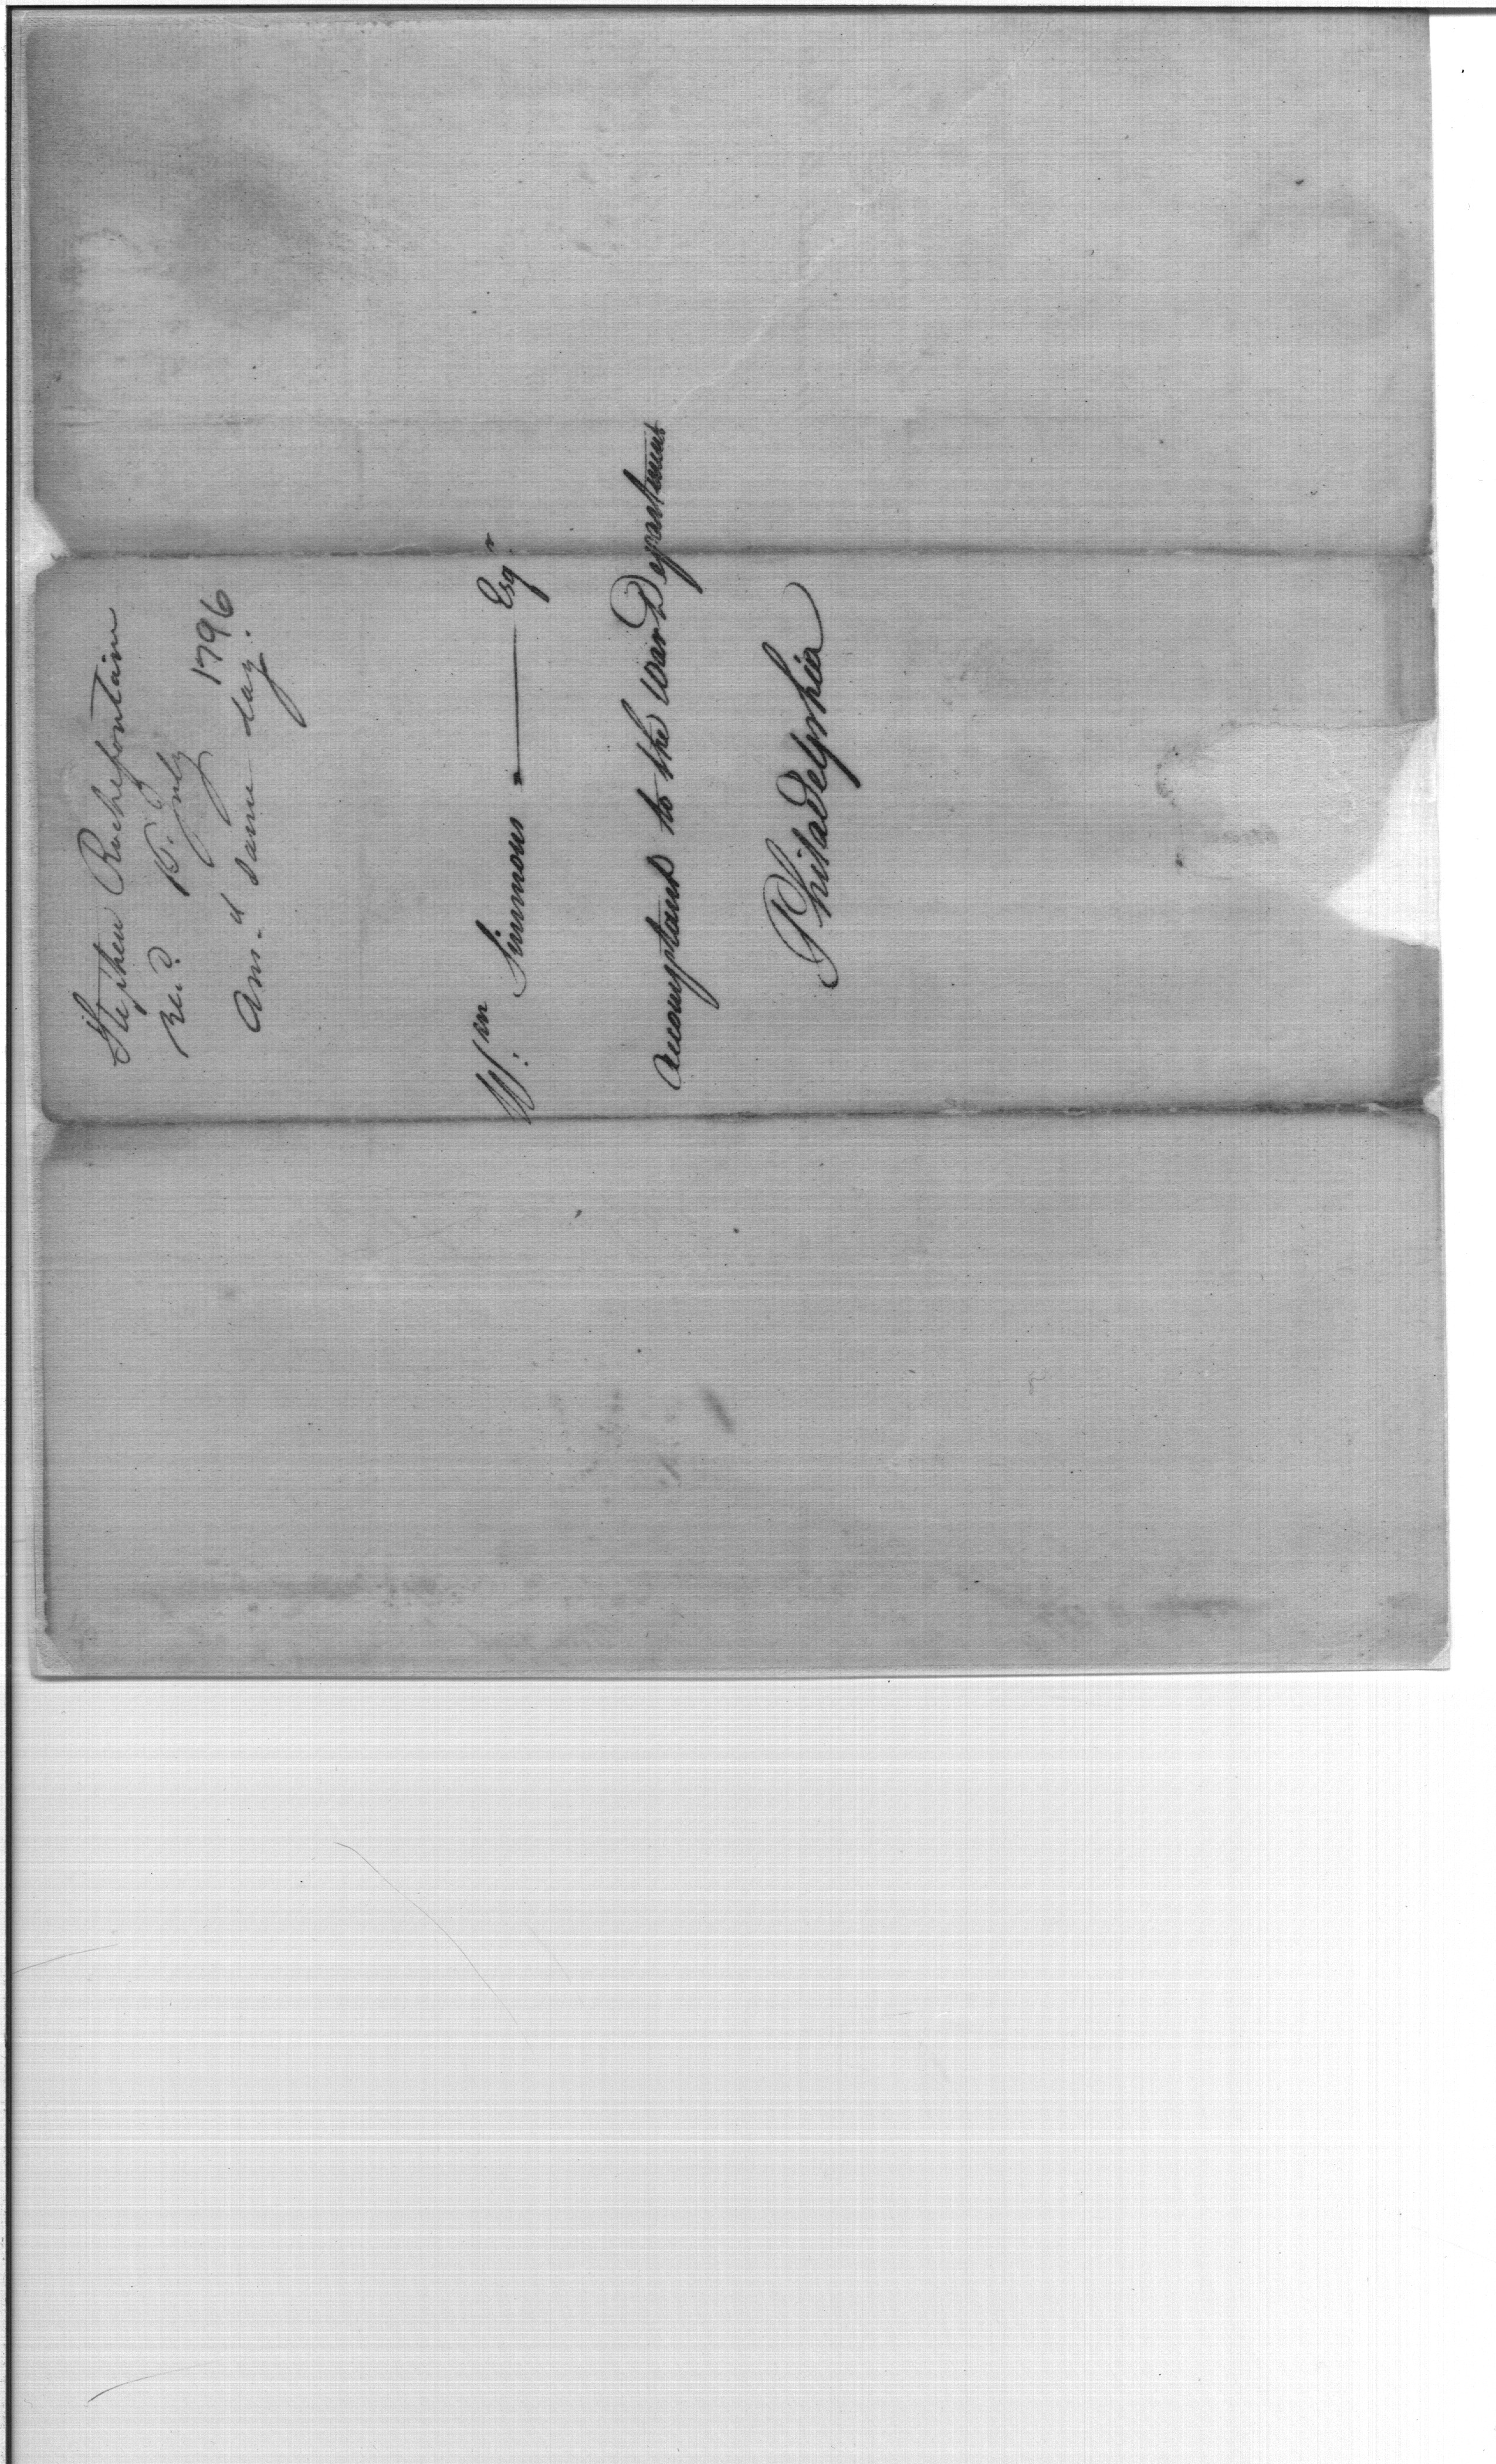 Stephen Rochefontain
Rec.d 15. July 1796
Ans.d same day.
W.m Simmons — Esq.r
accomptant to the War Department
Philadelphia